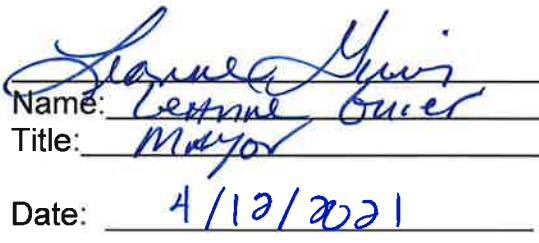 Leanne Guier
Name: Leanne Guier
Title: Mayor
Date: 4/12/2021